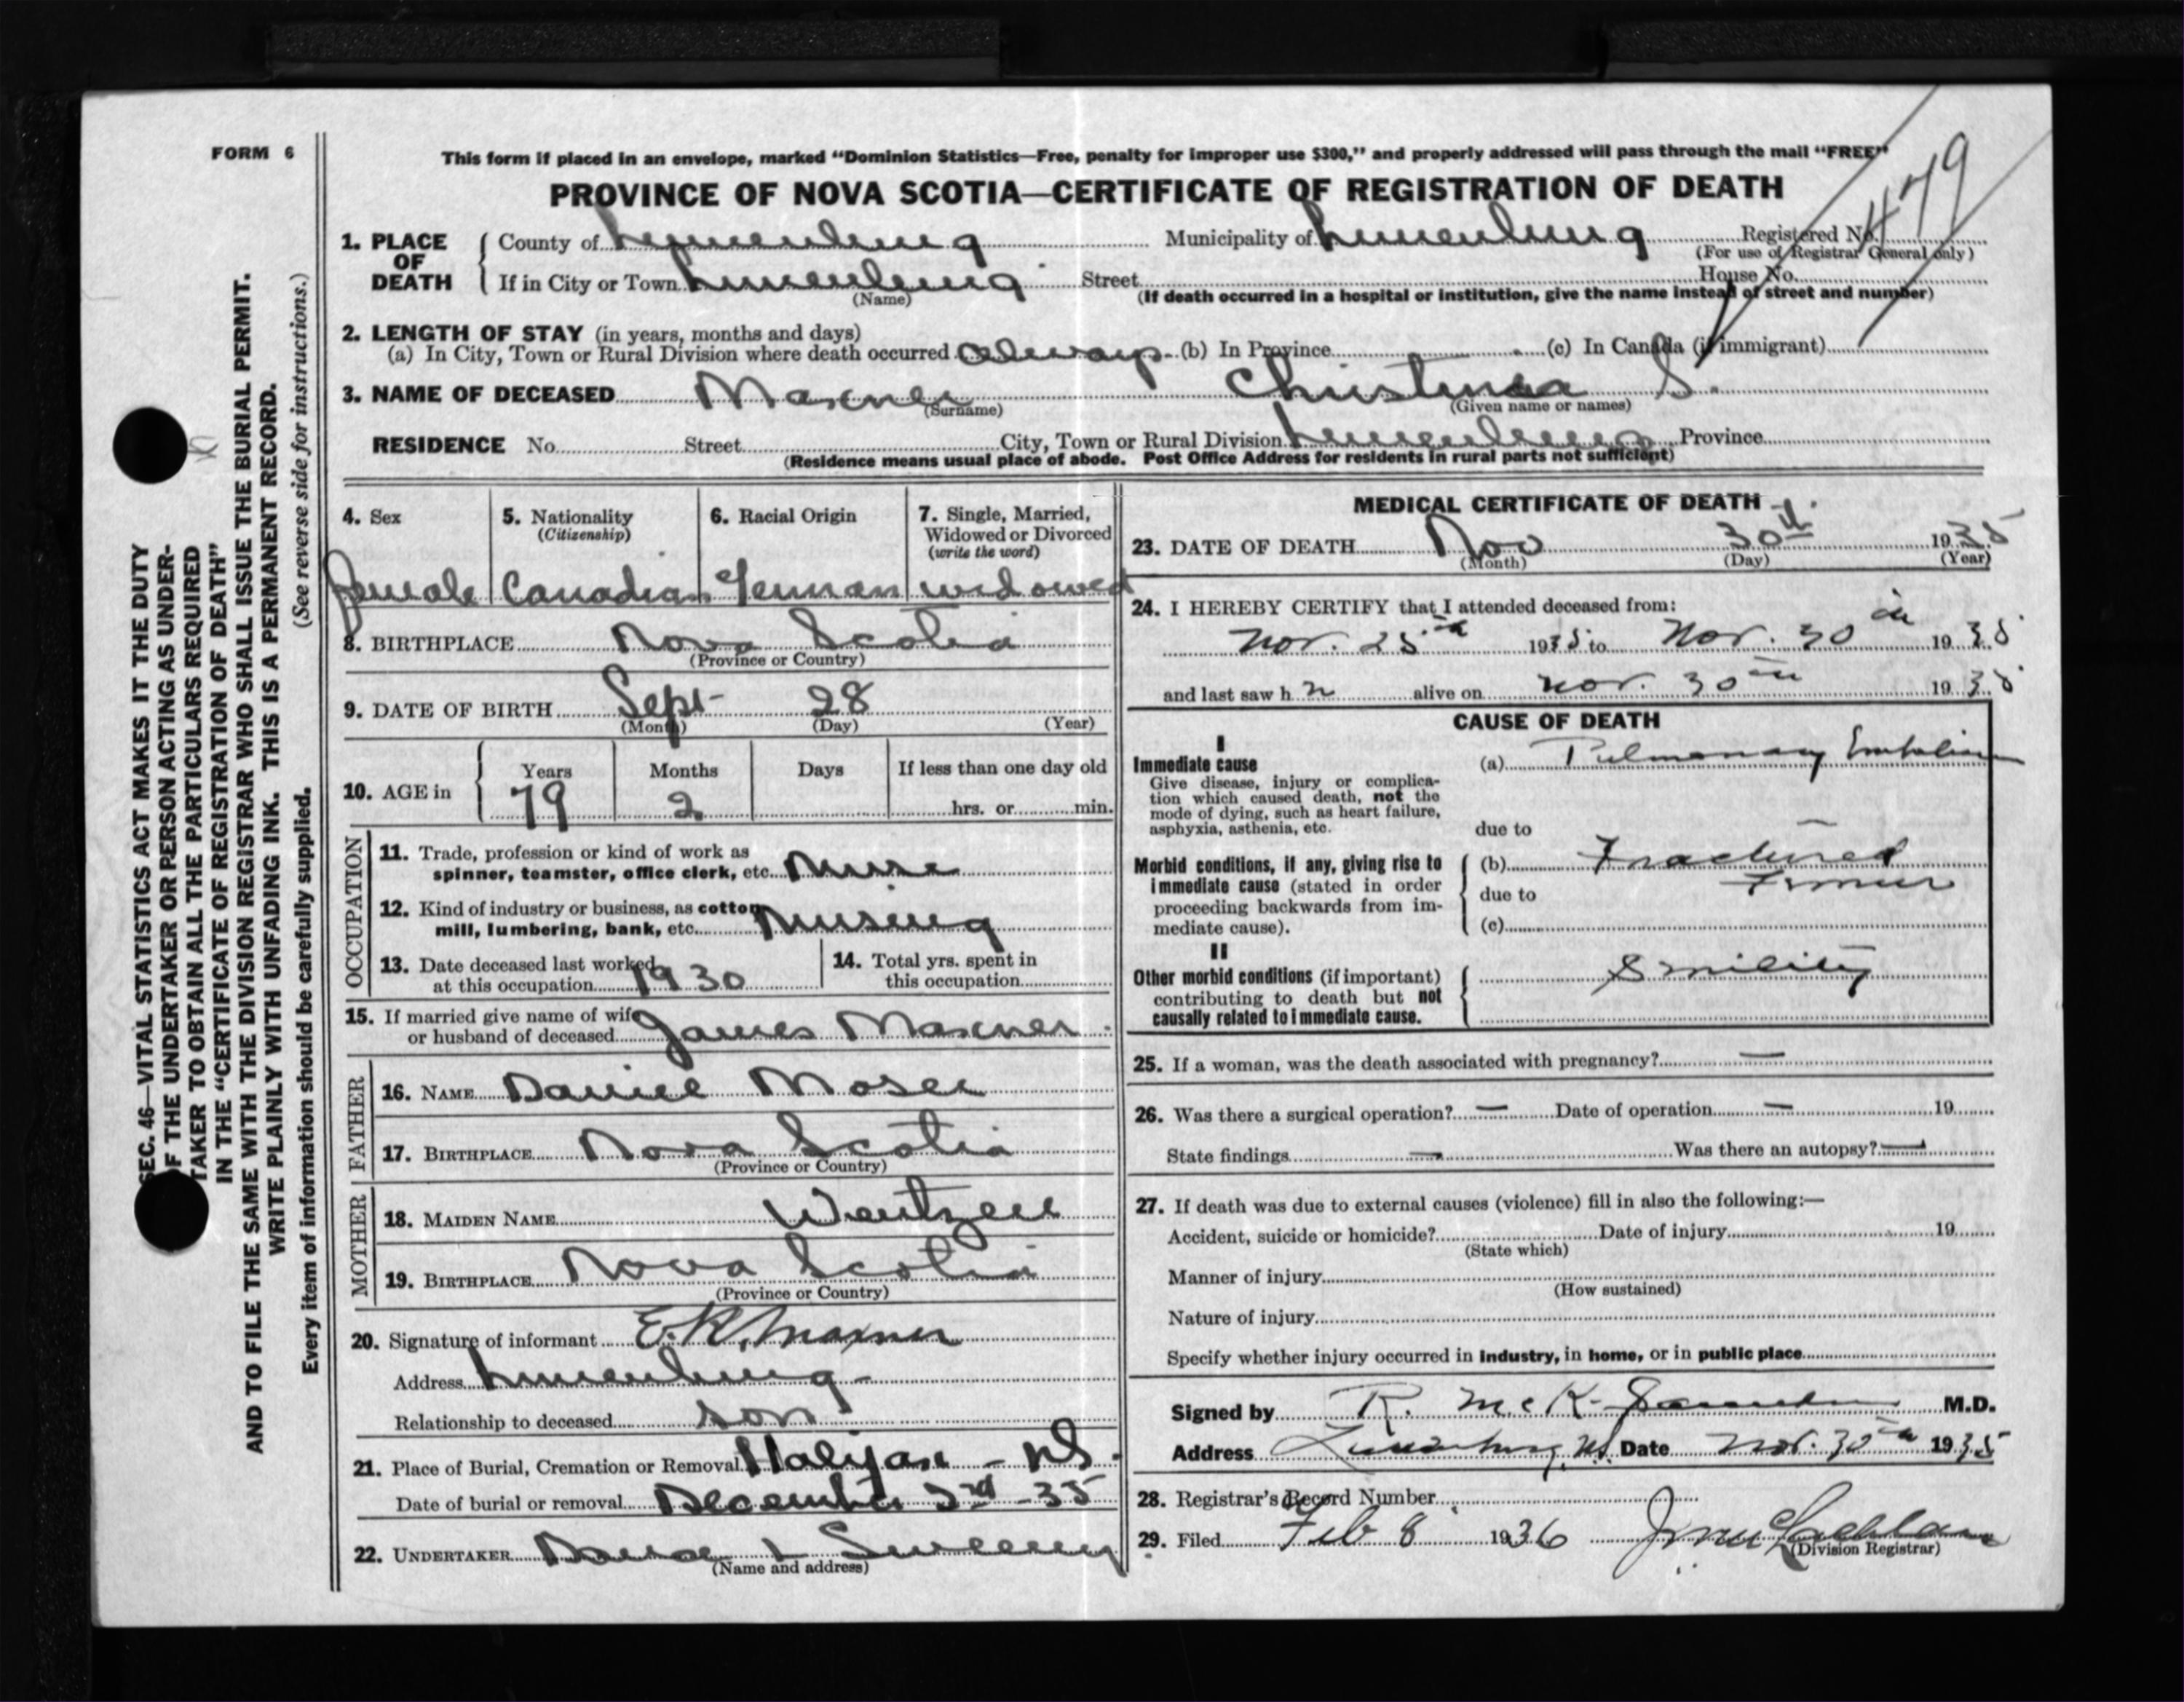 FORM 6
This form if placed in an envelope, marked “Dominion Statistics—Free, penalty for improper use $300,” and properly addressed will pass through the mail “FREE”
PROVINCE OF NOVA SCOTIA—CERTIFICATE OF REGISTRATION OF DEATH
1. PLACE OF DEATH County of Lunenburg Municipality of Lunenburg Registered No. 1179
(For use of Registrar General only)
If in City or Town Lunenburg Street House No.
(Name) (If death occurred in a hospital or institution, give the name instead of street and number)
2. LENGTH OF STAY (in years, months and days)
(a) In City, Town or Rural Division where death occurred always (b) In Province (c) In Canada (if immigrant)
3. NAME OF DECEASED Maxner Christina S.
(Surname) (Given name or names)
RESIDENCE No. Street City, Town or Rural Division Lunenburg Province
(Residence means usual place of abode. Post Office Address for residents in rural parts not sufficient)
4. Sex female
5. Nationality (Citizenship) Canadian
6. Racial Origin German
7. Single, Married, Widowed or Divorced (write the word) widowed
8. BIRTHPLACE Nova Scotia
(Province or Country)
9. DATE OF BIRTH Sept 28
(Month) (Day) (Year)
10. AGE in Years 79 Months 2 Days If less than one day old hrs. or min.
OCCUPATION
11. Trade, profession or kind of work as
spinner, teamster, office clerk, etc. Nurse
12. Kind of industry or business, as cotton
mill, lumbering, bank, etc. Nursing
13. Date deceased last worked
at this occupation 1930
14. Total yrs. spent in
this occupation
15. If married give name of wife
or husband of deceased James Maxner
FATHER
16. NAME Daniel Moser
17. BIRTHPLACE Nova Scotia
(Province or Country)
MOTHER
18. MAIDEN NAME Wentzell
19. BIRTHPLACE Nova Scotia
(Province or Country)
20. Signature of informant E.R. Maxner
Address Lunenburg
Relationship to deceased son
21. Place of Burial, Cremation or Removal Halifax - NS.
Date of burial or removal December 2nd - 35
22. UNDERTAKER Sweeny
(Name and address)
MEDICAL CERTIFICATE OF DEATH
23. DATE OF DEATH Nov 30th 1935
(Month) (Day) (Year)
24. I HEREBY CERTIFY that I attended deceased from:
Nov. 25th 1935 to Nov. 30th 1935
and last saw h r alive on Nov. 30th 1935
CAUSE OF DEATH
I
Immediate cause (a) Pulmonary Embolism
Give disease, injury or complica-
tion which caused death, not the
mode of dying, such as heart failure,
asphyxia, asthenia, etc.
due to
Morbid conditions, if any, giving rise to
immediate cause (stated in order
proceeding backwards from im-
mediate cause).
(b) Fractured Femur
due to
(c)
II
Other morbid conditions (if important)
contributing to death but not
causally related to immediate cause.
Senility
25. If a woman, was the death associated with pregnancy? —
26. Was there a surgical operation? — Date of operation — 19
State findings — Was there an autopsy? —
27. If death was due to external causes (violence) fill in also the following:—
Accident, suicide or homicide? Date of injury 19
(State which)
Manner of injury
(How sustained)
Nature of injury
Specify whether injury occurred in industry, in home, or in public place
Signed by R. McK. Saunders M.D.
Address Lunenburg, N.S. Date Nov. 30th 1935
28. Registrar's Record Number
29. Filed Feb 8 1936
(Division Registrar)
SEC. 46—VITAL STATISTICS ACT MAKES IT THE DUTY
OF THE UNDERTAKER OR PERSON ACTING AS UNDER-
TAKER TO OBTAIN ALL THE PARTICULARS REQUIRED
IN THE “CERTIFICATE OF REGISTRATION OF DEATH”
AND TO FILE THE SAME WITH THE DIVISION REGISTRAR WHO SHALL ISSUE THE BURIAL PERMIT.
WRITE PLAINLY WITH UNFADING INK. THIS IS A PERMANENT RECORD.
Every item of information should be carefully supplied. (See reverse side for instructions.)